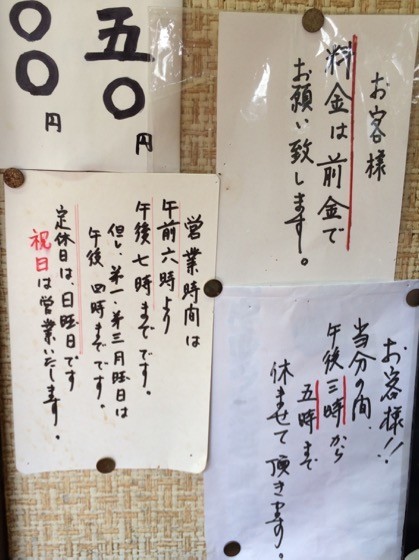 お客様
料金は前金で
お願い致します。
五〇円
〇〇円
営業時間は
午前六時より
午後七時までです。
但し、第一・第三月曜日は
午後四時までです。
定休日は、日曜日です
祝日は営業いたします。
お客様!!
当分の間、
午後三時から
五時まで
休ませて頂きます。